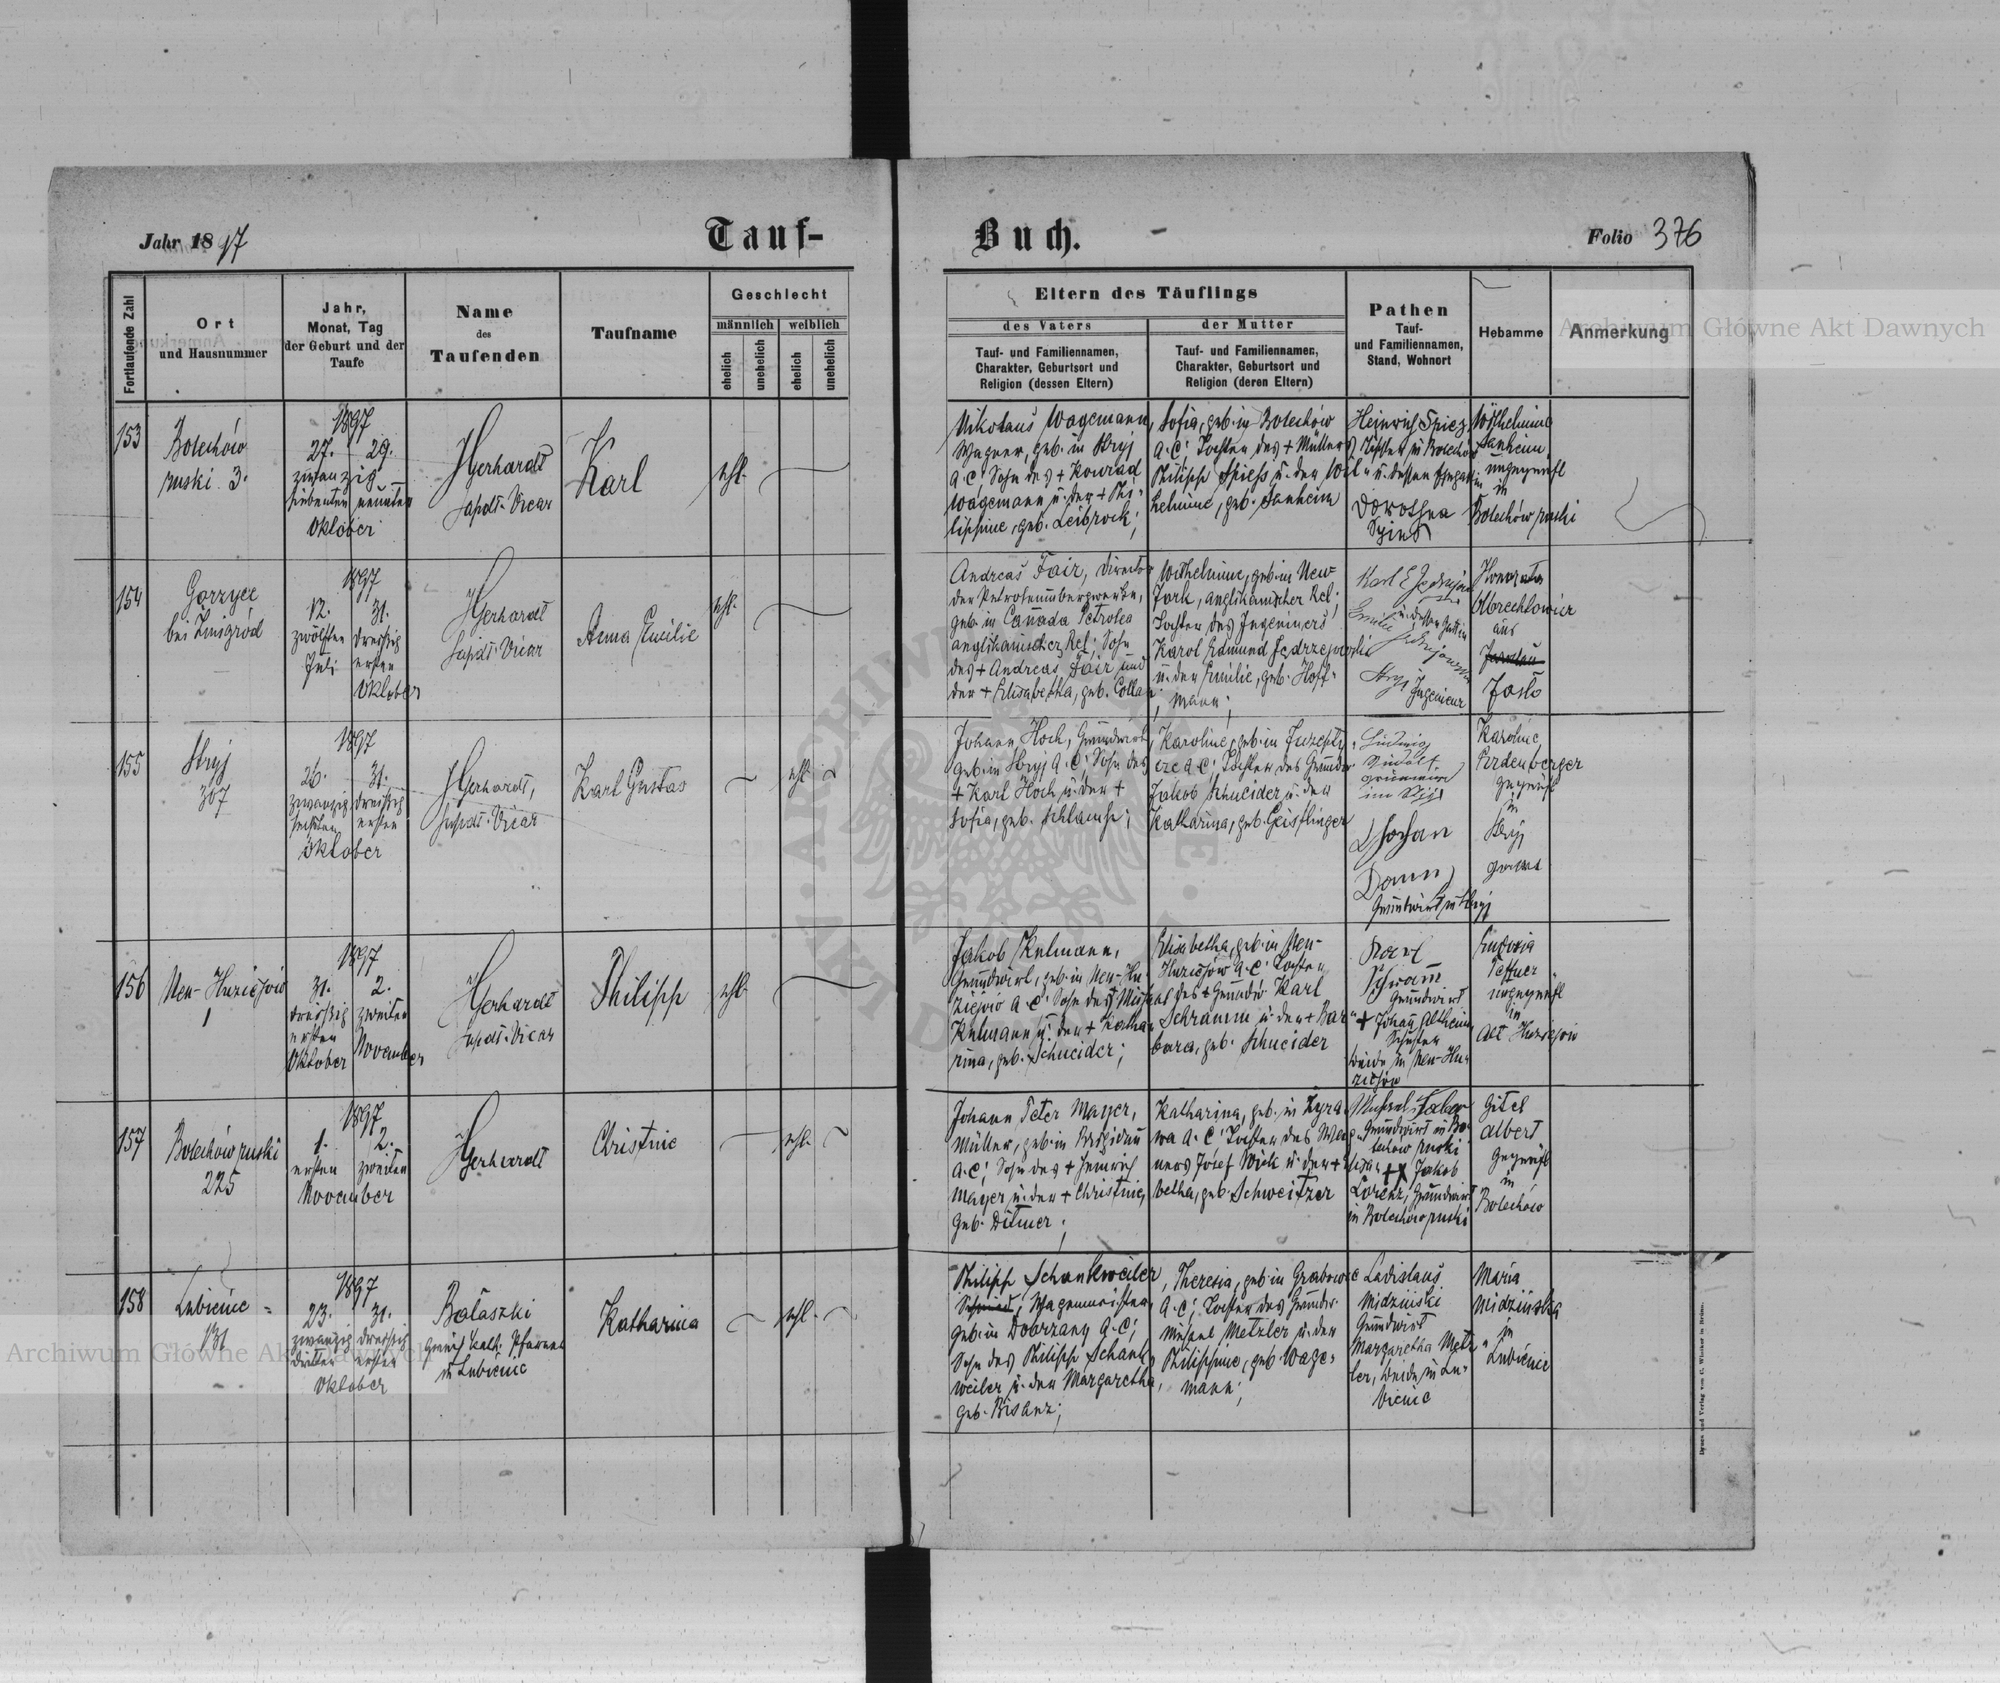 Jahr 1897
Tauf-
Buch.
Folio 376
Fortlaufende Zahl
Ort
und Hausnummer
Jahr,
Monat, Tag
der Geburt und der
Taufe
Name
des
Taufenden
Taufname
Geschlecht
männlich
weiblich
ehelich
unehelich
ehelich
unehelich
Eltern des Täuflings
des Vaters
der Mutter
Tauf- und Familiennamen,
Charakter, Geburtsort und
Religion (dessen Eltern)
Tauf- und Familiennamen,
Charakter, Geburtsort und
Religion (deren Eltern)
Pathen
Tauf-
und Familiennamen,
Stand, Wohnort
Hebamme
Anmerkung
Archiwum Główne Akt Dawnych
153
Bolechów
ruski 3.
1897
27. 29.
zwanzig
siebenten neunten
Oktober
Gerhardt
Vicar
Karl
ehl.
Nikolaus Wagemann,
Wagner, geb. in Stryj
A.C; Sohn des + Konrad
Wagemann u. der + Phi-
lippine, geb. Leibrock;
Sofia, geb. in Bolechów
A.C; Tochter des + Müllers
Philipp Spiess u. der Wil-
helmine, geb. Sanheim
Heinrich Spiez
Dorothea
Spies
Wilhelmine
Sanheim
ungeprüft
in
Bolechów ruski
154
Gorzyce
bei Żmigród
1897
12. 31.
zwölften dreissig
Juli ersten
Oktober
Gerhardt
Vicar
Anna Emilie
ehl.
Andreas Fair, Director
der Petroleumbergwerke,
geb. in Canada Petrolea
anglikanischer Rel; Sohn
des + Andreas Fair und
der + Elisabetha, geb. Collan
Wilhelmine, geb. in New-
York, anglikanischer Rel;
Tochter des Ingenieurs
Karol Edmund Jędrzejowski
u. der Emilie, geb. Hoff-
mann;
Karl E
u. dessen Gattin
Stryj Ingenieur
Albrechtowicz
aus
Jasło
155
Stryj
307
1897
26. 31.
zwanzig dreissig
sechsten ersten
Oktober
Gerhardt,
Vicar
Karl Gustav
ehl.
Johann Hoch, Grundwirt
geb. in Stryj A.C; Sohn des
+ Karl Hoch u. der +
Sofia, geb.
Karoline, geb. in
A.C; Tochter des Grundw.
Jakob Schneider u. der
Katharina, geb. Geisslinger
Ludwig
Johan
Dann
Grundwirt in Stryj
Karoline
geprüft
in
Stryj
156
Neu-
1
1897
31. 2.
dreissig zweiten
ersten
Oktober November
Gerhardt
Vicar
Philipp
ehl.
Jakob Kulmann,
Grundwirt, geb. in Neu-
A.C; Sohn des + Michael
Kulmann u. der + Katha-
rina, geb. Schneider;
Elisabetha, geb. in Neu-
A.C; Tochter
des + Grundw. Karl
Schramm u. der + Bar-
bara, geb. Schneider
Karl
Schram
Grundwirt
+ Johann Altheim
beide in Neu-
ungeprüft
in
157
Bolechów ruski
225
1897
1. 2.
ersten zweiten
November
Gerhardt
Christine
ehl.
Johann Peter Mayer,
Müller, geb. in Brigidau
A.C; Sohn des + Heinrich
Mayer u. der + Christine,
geb. Ditmer;
Katharina, geb. in
A.C; Tochter des Wag-
ners Josef Wick u. der + Elisa-
betha, geb. Schweitzer
Michael Faber
Grundwirt in Bo-
lechów ruski
++ Jakob
Lorenz, Grundwirt
in Bolechów ruski
Gitel
Albert
geprüft
in
Bolechów
158
Lubieńce
131
1897
23. 31.
zwanzig dreissig
dritten ersten
Oktober
Bałaszki
griech. kath. Pfarrer
in Lubieńce
Katharina
ehl.
Philipp Schankweiler,
Wagenmeister,
geb. in Dobrzany A.C;
Sohn des Philipp Schank-
weiler u. der Margaretha,
geb. Bisanz;
Theresia, geb. in Grabowce
A.C; Tochter des Grundw.
Michael Metzler u. der
Philippine, geb. Wage-
mann;
Ladislaus
Midziński
Grundwirt
Margaretha Metz-
ler, beide in Lu-
bieńce
Maria
Midzińska
in
Lubieńce
Archiwum Główne Akt Dawnych